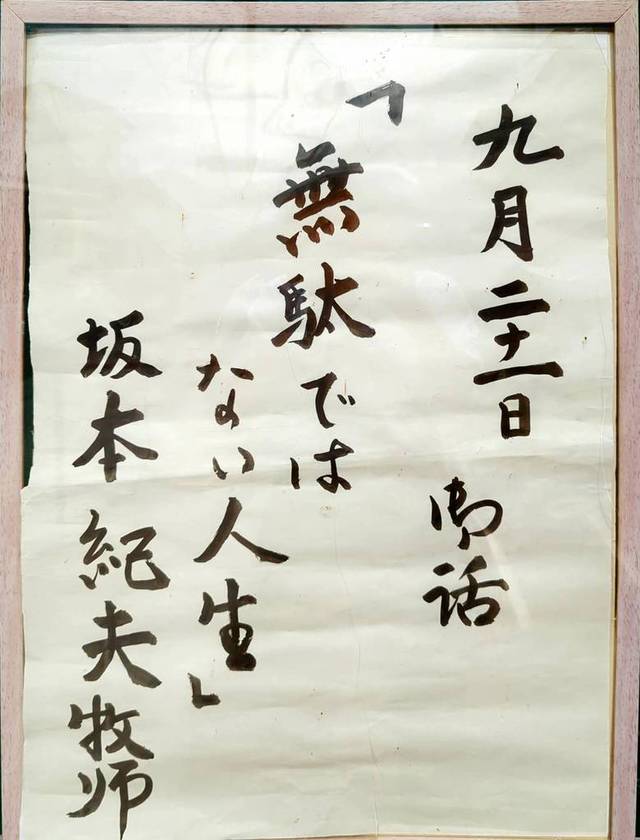 九月二十一日
御话
「無駄では
ない人生」
坂本紀夫牧师